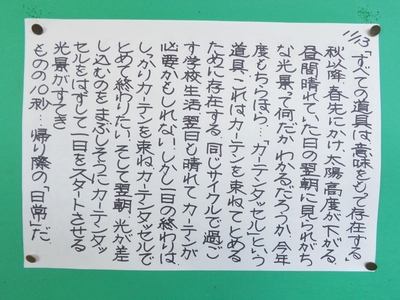 11/13「すべての道具は意味をもって存在する」
秋以降、春先にかけ、太陽高度が下がる。
昼間晴れていた日の翌朝に見られがち
な光景って何だかわかるだろうか。今年
度もちらほら…「カーテンタッセル」という
道具、これはカーテンを束ねてとめる
ために存在する。同じサイクルで過ご
す学校生活、翌日も晴れて、カーテンが
必要かもしれない。しかし一日の終わりは、
しっかりカーテンを束ね、カーテンタッセルで
とめて終わりたい。そして翌朝、光が差
し込むのをまぶしそうにカーテンタッ
セルをはずして一日をスタートさせる
光景がすてき
ものの10秒…帰り際の「日常」だ。